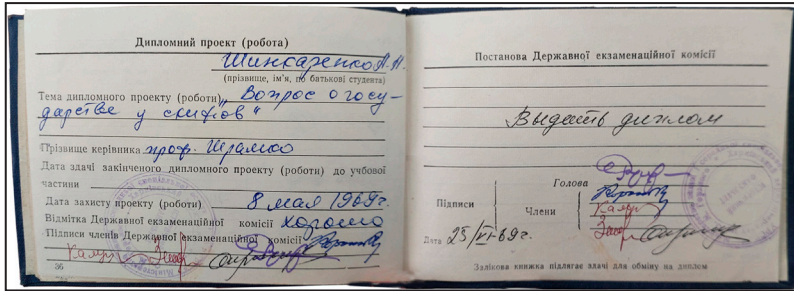 Дипломний проект (робота)
Шинкаренко А. Н.
(прізвище, ім'я, по батькові студента)
Тема дипломного проекту (роботи) „Вопрос о госу-
дарстве у скифов“
Прізвище керівника проф. Шрамко
Дата здачі закінченого дипломного проекту (роботи) до учбової
частини
Дата захисту проекту (роботи) 8 мая 1969г.
Відмітка Державної екзаменаційної комісії хорошо
Підписи членів Державної екзаменаційної комісії
36
Постанова Державної екзаменаційної комісії
Выдать диплом
Голова
Підписи
Члени
Дата 25/VI-69г.
Залікова книжка підлягає здачі для обміну на диплом